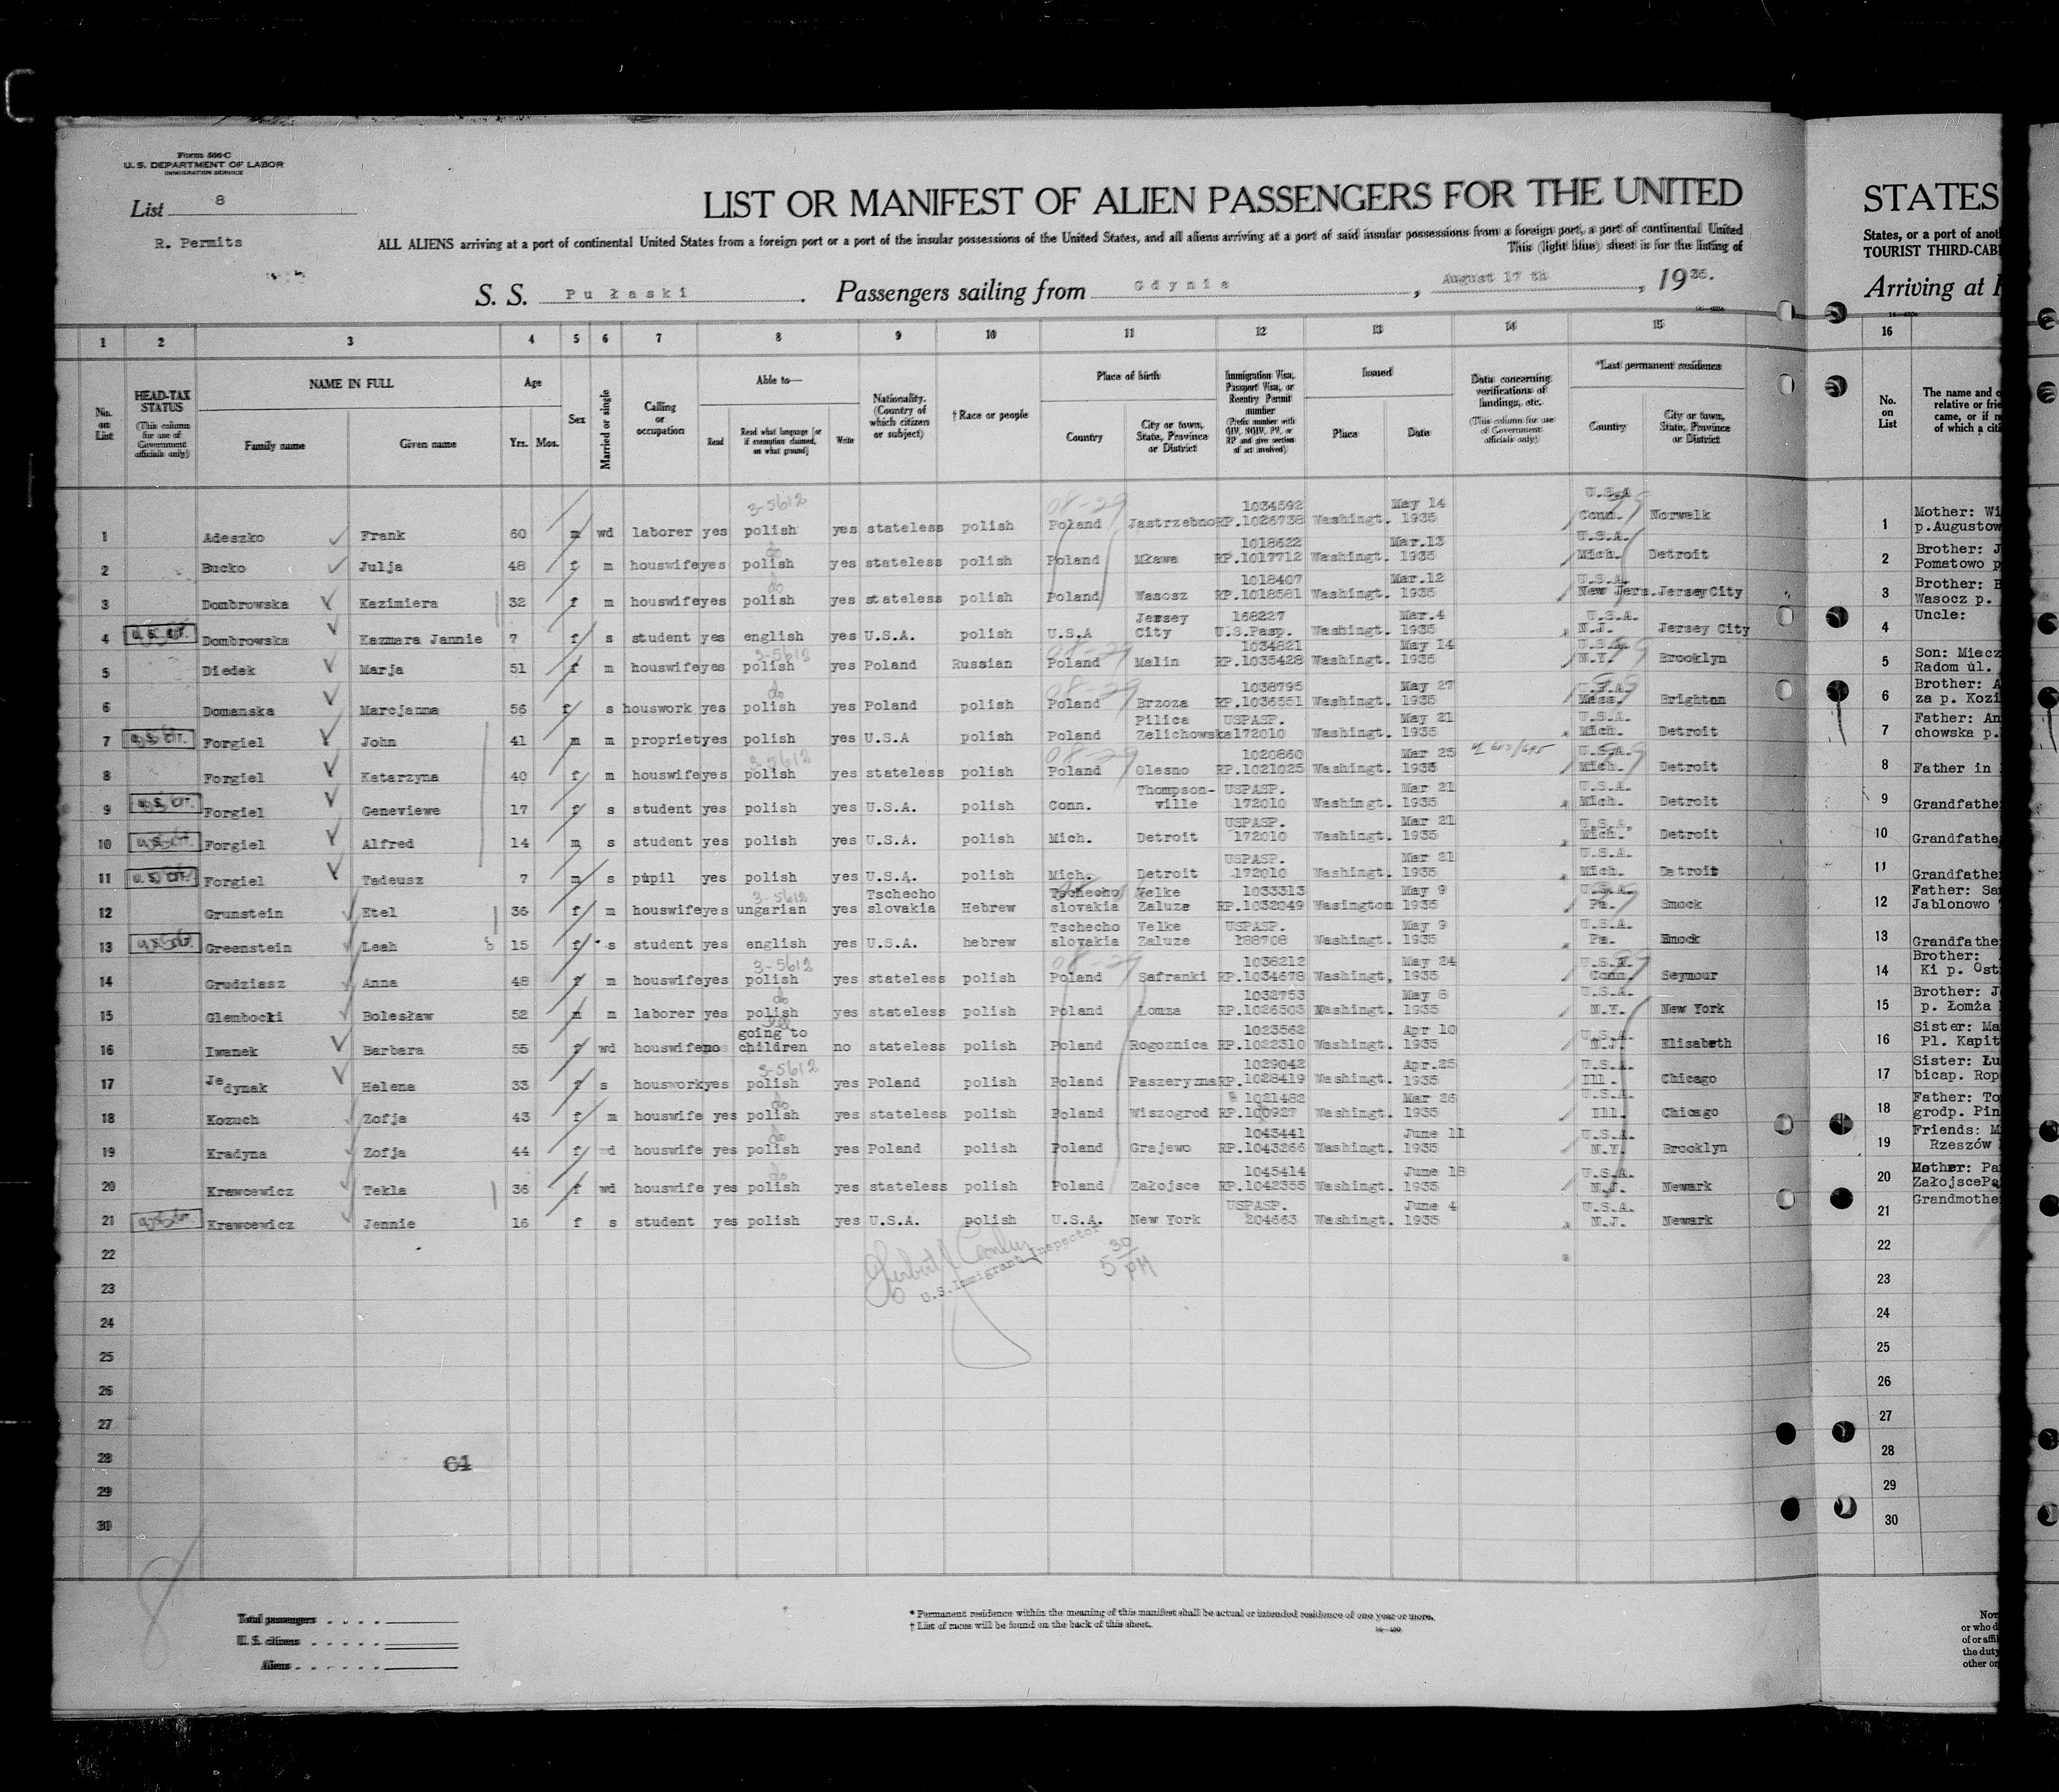 Form 506-C
U. S. DEPARTMENT OF LABOR
IMMIGRATION SERVICE
List 8
R. Permits
LIST OR MANIFEST OF ALIEN PASSENGERS FOR THE UNITED
ALL ALIENS arriving at a port of continental United States from a foreign port or a port of the insular possessions of the United States, and all aliens arriving at a port of said insular possessions from a foreign port, a port of continental United
This (light blue) sheet is for the listing of
S. S. Pułaski. Passengers sailing from Gdynia, August 17 th, 1935.
1 2 3 4 5 6 7 8 9 10 11 12 13 14 15
No. on List
HEAD-TAX STATUS (This column for use of Government officials only)
NAME IN FULL Family name Given name
Age Yrs. Mos.
Sex
Married or single
Calling or occupation
Able to— Read Read what language [or if exemption claimed, on what ground] Write
Nationality. (Country of which citizen or subject)
† Race or people
Place of birth Country City or town, State, Province or District
Immigration Visa, Passport Visa, or Reentry Permit number (Prefix number with QIV, NQIV, PV, or RP and give section of act involved)
Issued Place Date
Data concerning verifications of landings, etc. (This column for use of Government officials only)
*Last permanent residence Country City or town, State, Province or District
1 Adeszko Frank 60 m wd laborer yes polish 3-5612 yes stateless polish Poland 08-29 Jastrzebno 1034592 RP.1026738 Washingt. May 14 1935 U.S.A Conn. Norwalk
2 Bucko Julja 48 f m houswife yes polish do yes stateless polish Poland Mława 1018622 RP.1017712 Washingt. Mar.13 1935 U.S.A. Mich. Detroit
3 Dombrowska Kazimiera 32 f m houswife yes polish do yes stateless polish Poland Wasosz 1018407 RP.1018581 Washingt. Mar.12 1935 U.S.A. New Jers. Jersey City
4 U.S. CIT. Dombrowska Kazmara Jannie 7 f s student yes english yes U.S.A. polish U.S.A Jersey City 168227 U.S.Pasp. Washingt. Mar.4 1935 U.S.A. N.J. Jersey City
5 Diedek Marja 51 f m houswife yes polish 3-5612 yes Poland Russian Poland 08-29 Malin 1034821 RP.1035428 Washingt. May 14 1935 U.S.A. N.Y. Brooklyn
6 Domanska Marcjanna 56 f s houswork yes polish do yes Poland polish Poland 08-29 Brzoza 1038795 RP.1036551 Washingt. May 27 1935 U.S.A. Mass. Brighton
7 U.S. CIT. Forgiel John 41 m m propriet yes polish yes U.S.A polish Poland Pilica Zelichowska USPASP. 172010 Washingt. May 21 1935 U.S.A. Mich. Detroit
8 Forgiel Katarzyna 40 f m houswife yes polish 3-5612 yes stateless polish Poland 08-29 Olesno 1020860 RP.1021025 Washingt. Mar 25 1935 U.S.A. Mich. Detroit
9 U.S. CIT. Forgiel Geneviewe 17 f s student yes polish yes U.S.A. polish Conn. Thompson-ville USPASP. 172010 Washingt. Mar 21 1935 U.S.A. Mich. Detroit
10 U.S. CIT. Forgiel Alfred 14 m s student yes polish yes U.S.A. polish Mich. Detroit USPASP. 172010 Washingt. Mar 21 1935 U.S.A. Mich. Detroit
11 U.S. CIT. Forgiel Tadeusz 7 m s pupil yes polish yes U.S.A. polish Mich. Detroit USPASP. 172010 Washingt. Mar 21 1935 U.S.A. Mich. Detroit
12 Grunstein Etel 36 f m houswife yes ungarian 3-5612 yes Tschecho slovakia Hebrew Tschecho slovakia Velke Zaluze 1033313 RP.1032049 Wasington May 9 1935 U.S.A. Pa. Smock
13 U.S. CIT. Greenstein Leah 15 f s student yes english yes U.S.A. hebrew Tschecho slovakia Velke Zaluze USPASP. 188708 Washingt. May 9 1935 U.S.A. Pa. Smock
14 Grudziasz Anna 48 f m houswife yes polish 3-5612 yes stateless polish Poland 08-29 Safranki 1036212 RP.1034678 Washingt, May 24 1935 U.S.A. Conn. Seymour
15 Glembocki Bolesław 52 m m laborer yes polish do yes stateless polish Poland Łomza 1032753 RP.1026503 Washingt. May 8 1935 U.S.A. N.Y. New York
16 Iwanek Barbara 55 f wd houswife no going to children no stateless polish Poland Rogoznica 1023562 RP.1022310 Washingt. Apr 10 1935 U.S.A. N.J. Elisabeth
17 Jedynak Helena 33 f s houswork yes polish 3-5612 yes Poland polish Poland Paszeryzna 1029042 RP.1028419 Washingt. Apr.25 1935 U.S.A. Ill. Chicago
18 Kozuch Zofja 43 f m houswife yes polish do yes stateless polish Poland Wiszogrod 1021482 RP.100927 Washingt. Mar 26 1935 U.S.A. Ill. Chicago
19 Kradyna Zofja 44 f wd houswife yes polish do yes Poland polish Poland Grajewo 1045441 RP.1043266 Washingt. June 11 1935 U.S.A. N.Y. Brooklyn
20 Krawcewicz Tekla 36 f wd houswife yes polish do yes stateless polish Poland Załojsce 1045414 RP.1042355 Washingt. June 18 1935 U.S.A. N.J. Newark
21 U.S. CIT. Krawcewicz Jennie 16 f s student yes polish yes U.S.A. polish U.S.A. New York USPASP. 204663 Washingt. June 4 1935 U.S.A. N.J. Newark
22
U.S.Immigrant Inspector
5 30 PM
23
24
25
26
27
28
64
29
30
8
Total passengers
U. S. citizens
Aliens
* Permanent residence within the meaning of this manifest shall be actual or intended residence of one year or more.
† List of races will be found on the back of this sheet.
STATES
States, or a port of anot
TOURIST THIRD-CAB
Arriving at
16
No. on List
The name and c
relative or frie
came, or if n
of which a citi
1 Mother: Wi
p.Augustow
2 Brother: J
Pomatowo p
3 Brother: B
Wasocz p.
4 Uncle:
5 Son: Miecz
Radom ul.
6 Brother: A
za p. Kozi
7 Father: An
chowska p.
8 Father in
9 Grandfathe
10 Grandfathe
11 Grandfathe
12 Father: Sa
Jablonowo
13 Grandfathe
14 Brother:
Ki p. Ost
15 Brother: J
p. Łomża
16 Sister: Ma
Pl. Kapit
17 Sister: Łu
bicap. Rop
18 Father: To
grodp. Pin
19 Friends: M
Rzeszów
20 Mother: Pa
ZałojscePa
21 Grandmothe
22
23
24
25
26
27
28
29
30
Nor
or who d
of or affil
the duty
other or